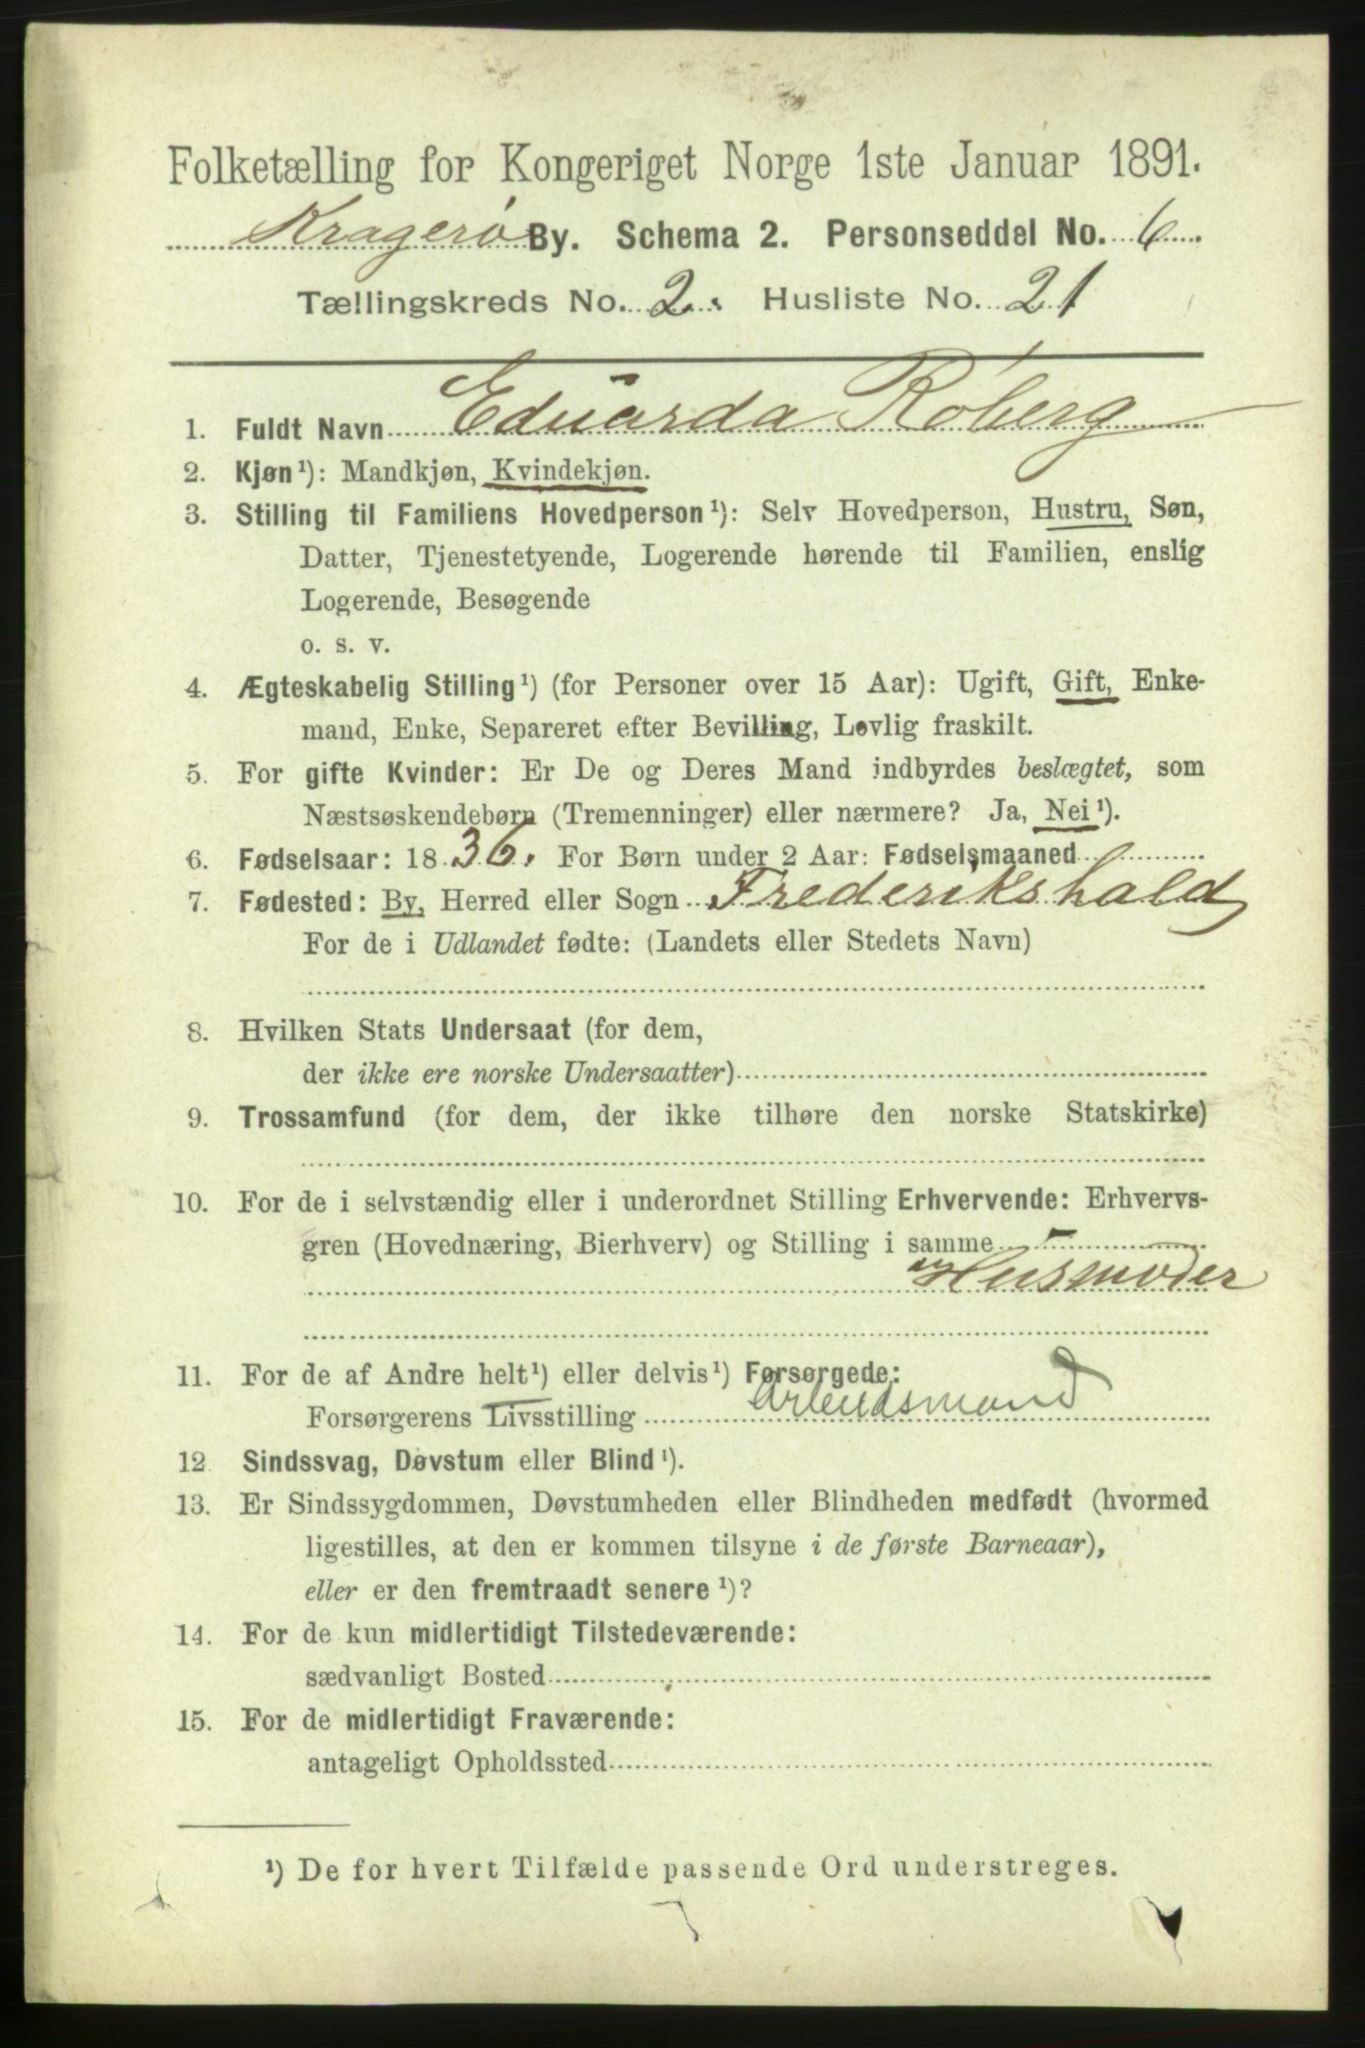 Folketælling for Kongeriget Norge 1ste Januar 1891.
Kragerø By. Schema 2. Personseddel No. 6.
Tællingskreds No. 2. Husliste No. 21
1. Fuldt Navn Eduarda Róberg
2. Kjøn¹): Mandkjøn, Kvindekjøn.
3. Stilling til Familiens Hovedperson¹): Selv Hovedperson, Hustru, Søn,
Datter, Tjenestetyende, Logerende hørende til Familien, enslig
Logerende, Besøgende
o. s. v.
4. Ægteskabelig Stilling¹) (for Personer over 15 Aar): Ugift, Gift, Enke-
mand, Enke, Separeret efter Bevilling, Lovlig fraskilt.
5. For gifte Kvinder: Er De og Deres Mand indbyrdes beslægtet, som
Næstsøskendebørn (Tremenninger) eller nærmere? Ja, Nei¹).
6. Fødselsaar: 1836. For Børn under 2 Aar: Fødselsmaaned
7. Fødested: By, Herred eller Sogn Frederikshald
For de i Udlandet fødte: (Landets eller Stedets Navn)
8. Hvilken Stats Undersaat (for dem,
der ikke ere norske Undersaatter)
9. Trossamfund (for dem, der ikke tilhøre den norske Statskirke)
10. For de i selvstændig eller i underordnet Stilling Erhvervende: Erhvervs-
gren (Hovednæring, Bierhverv) og Stilling i samme
Husmoder
11. For de af Andre helt¹) eller delvis¹) Forsørgede:
Forsørgerens Livsstilling Arbeidsmand
12 Sindssvag, Døvstum eller Blind¹).
13. Er Sindssygdommen, Døvstumheden eller Blindheden medfødt (hvormed
ligestilles, at den er kommen tilsyne i de første Barneaar),
eller er den fremtraadt senere¹)?
14. For de kun midlertidigt Tilstedeværende:
sædvanligt Bosted
15. For de midlertidigt Fraværende:
antageligt Opholdssted
¹) De for hvert Tilfælde passende Ord understreges.